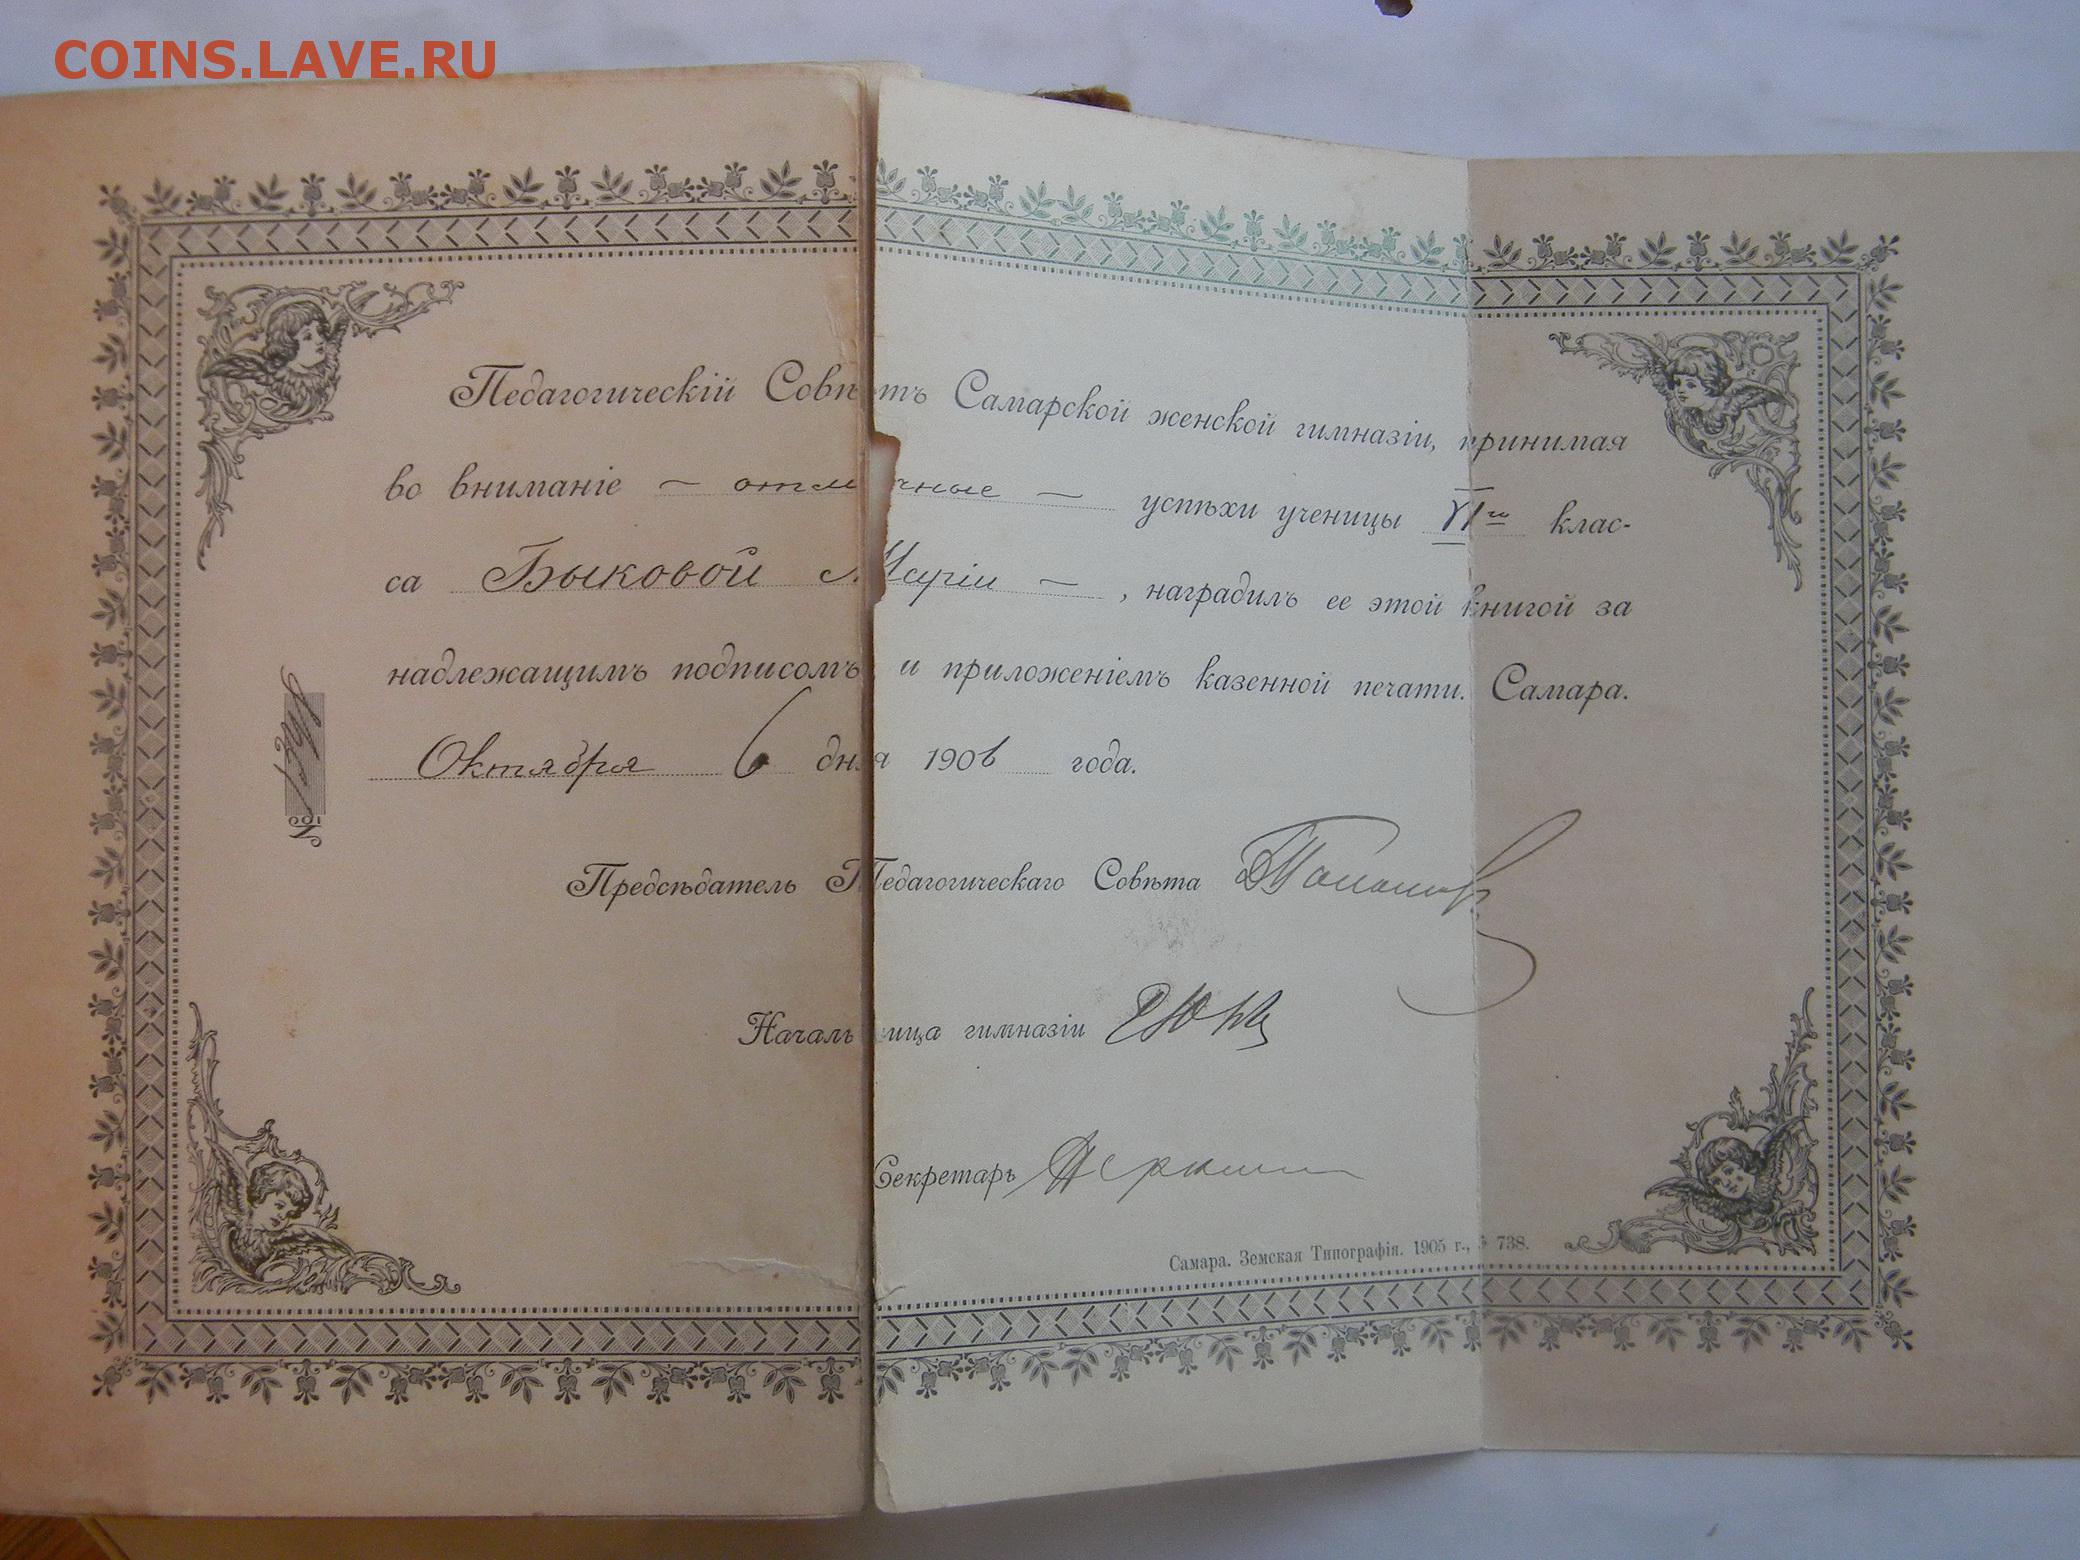 COINS.LAVE.RU
Педагогическій Совѣтъ Самарской женской гимназіи, принимая
во вниманіе — отличные — успѣхи ученицы VIго клас-
са Быковой Маріи — , наградилъ ее этой книгой за
надлежащимъ подписомъ и приложеніемъ казенной печати. Самара.
Октября 6 дня 1906 года.
№
Предсѣдатель Педагогическаго Совѣта
Начальница гимназіи
Секретарь
Самара. Земская Типографія. 1905 г., 738.